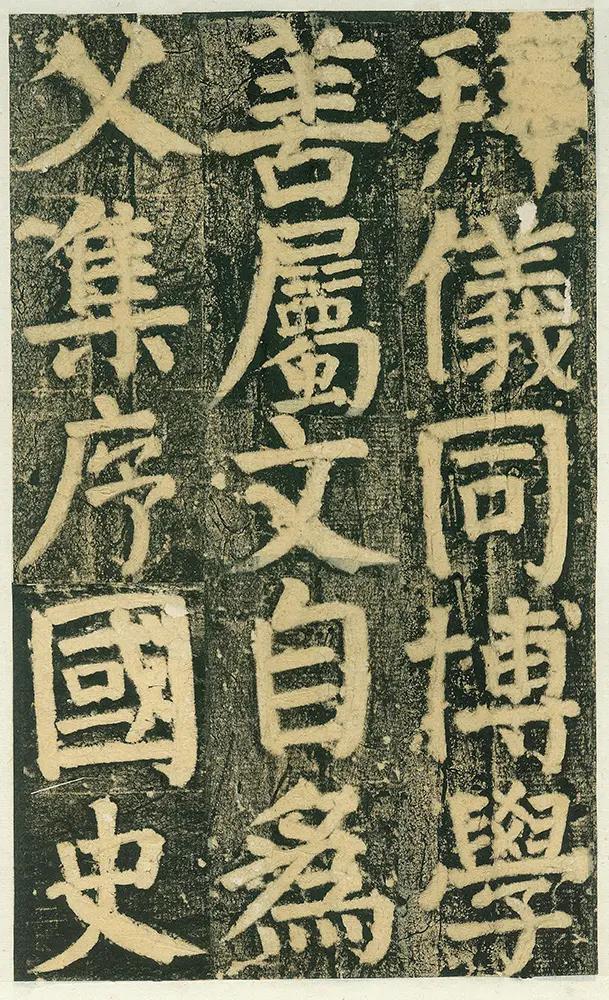 儀同博學
善屬文自爲
父集序國史